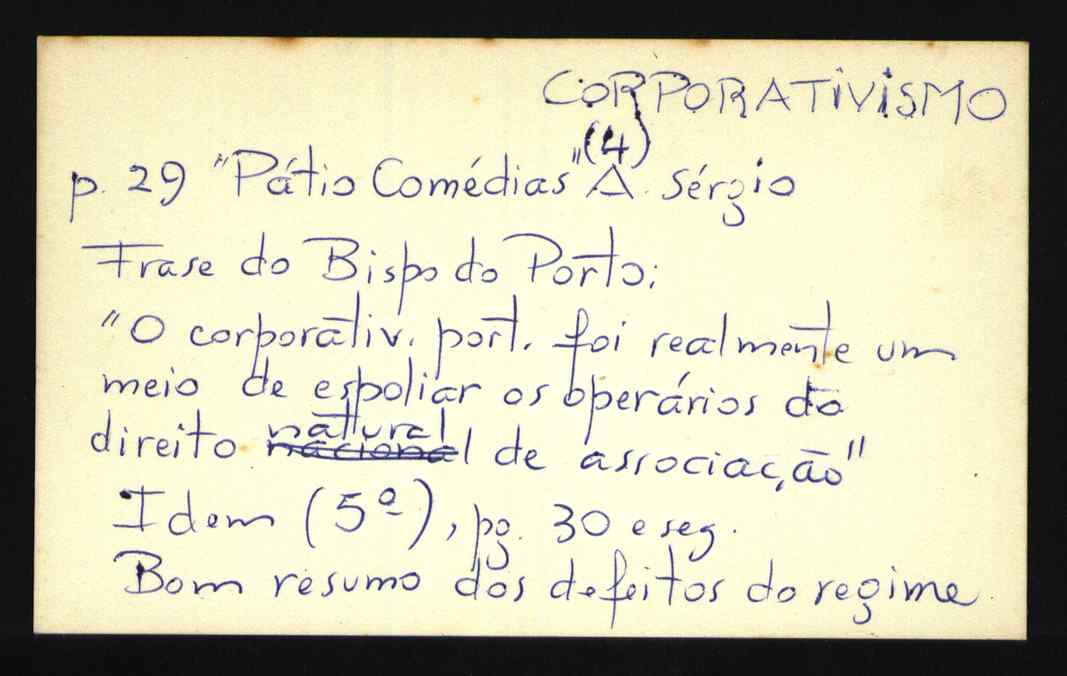 CORPORATIVISMO
p. 29 "Pátio Comédias" (4) A. Sérgio
Frase do Bispo do Porto:
"O corporativ. port. foi realmente um
meio de espoliar os operários do
direito natural nacional de associação"
Idem (5º), pg. 30 e seg.
Bom resumo dos defeitos do regime